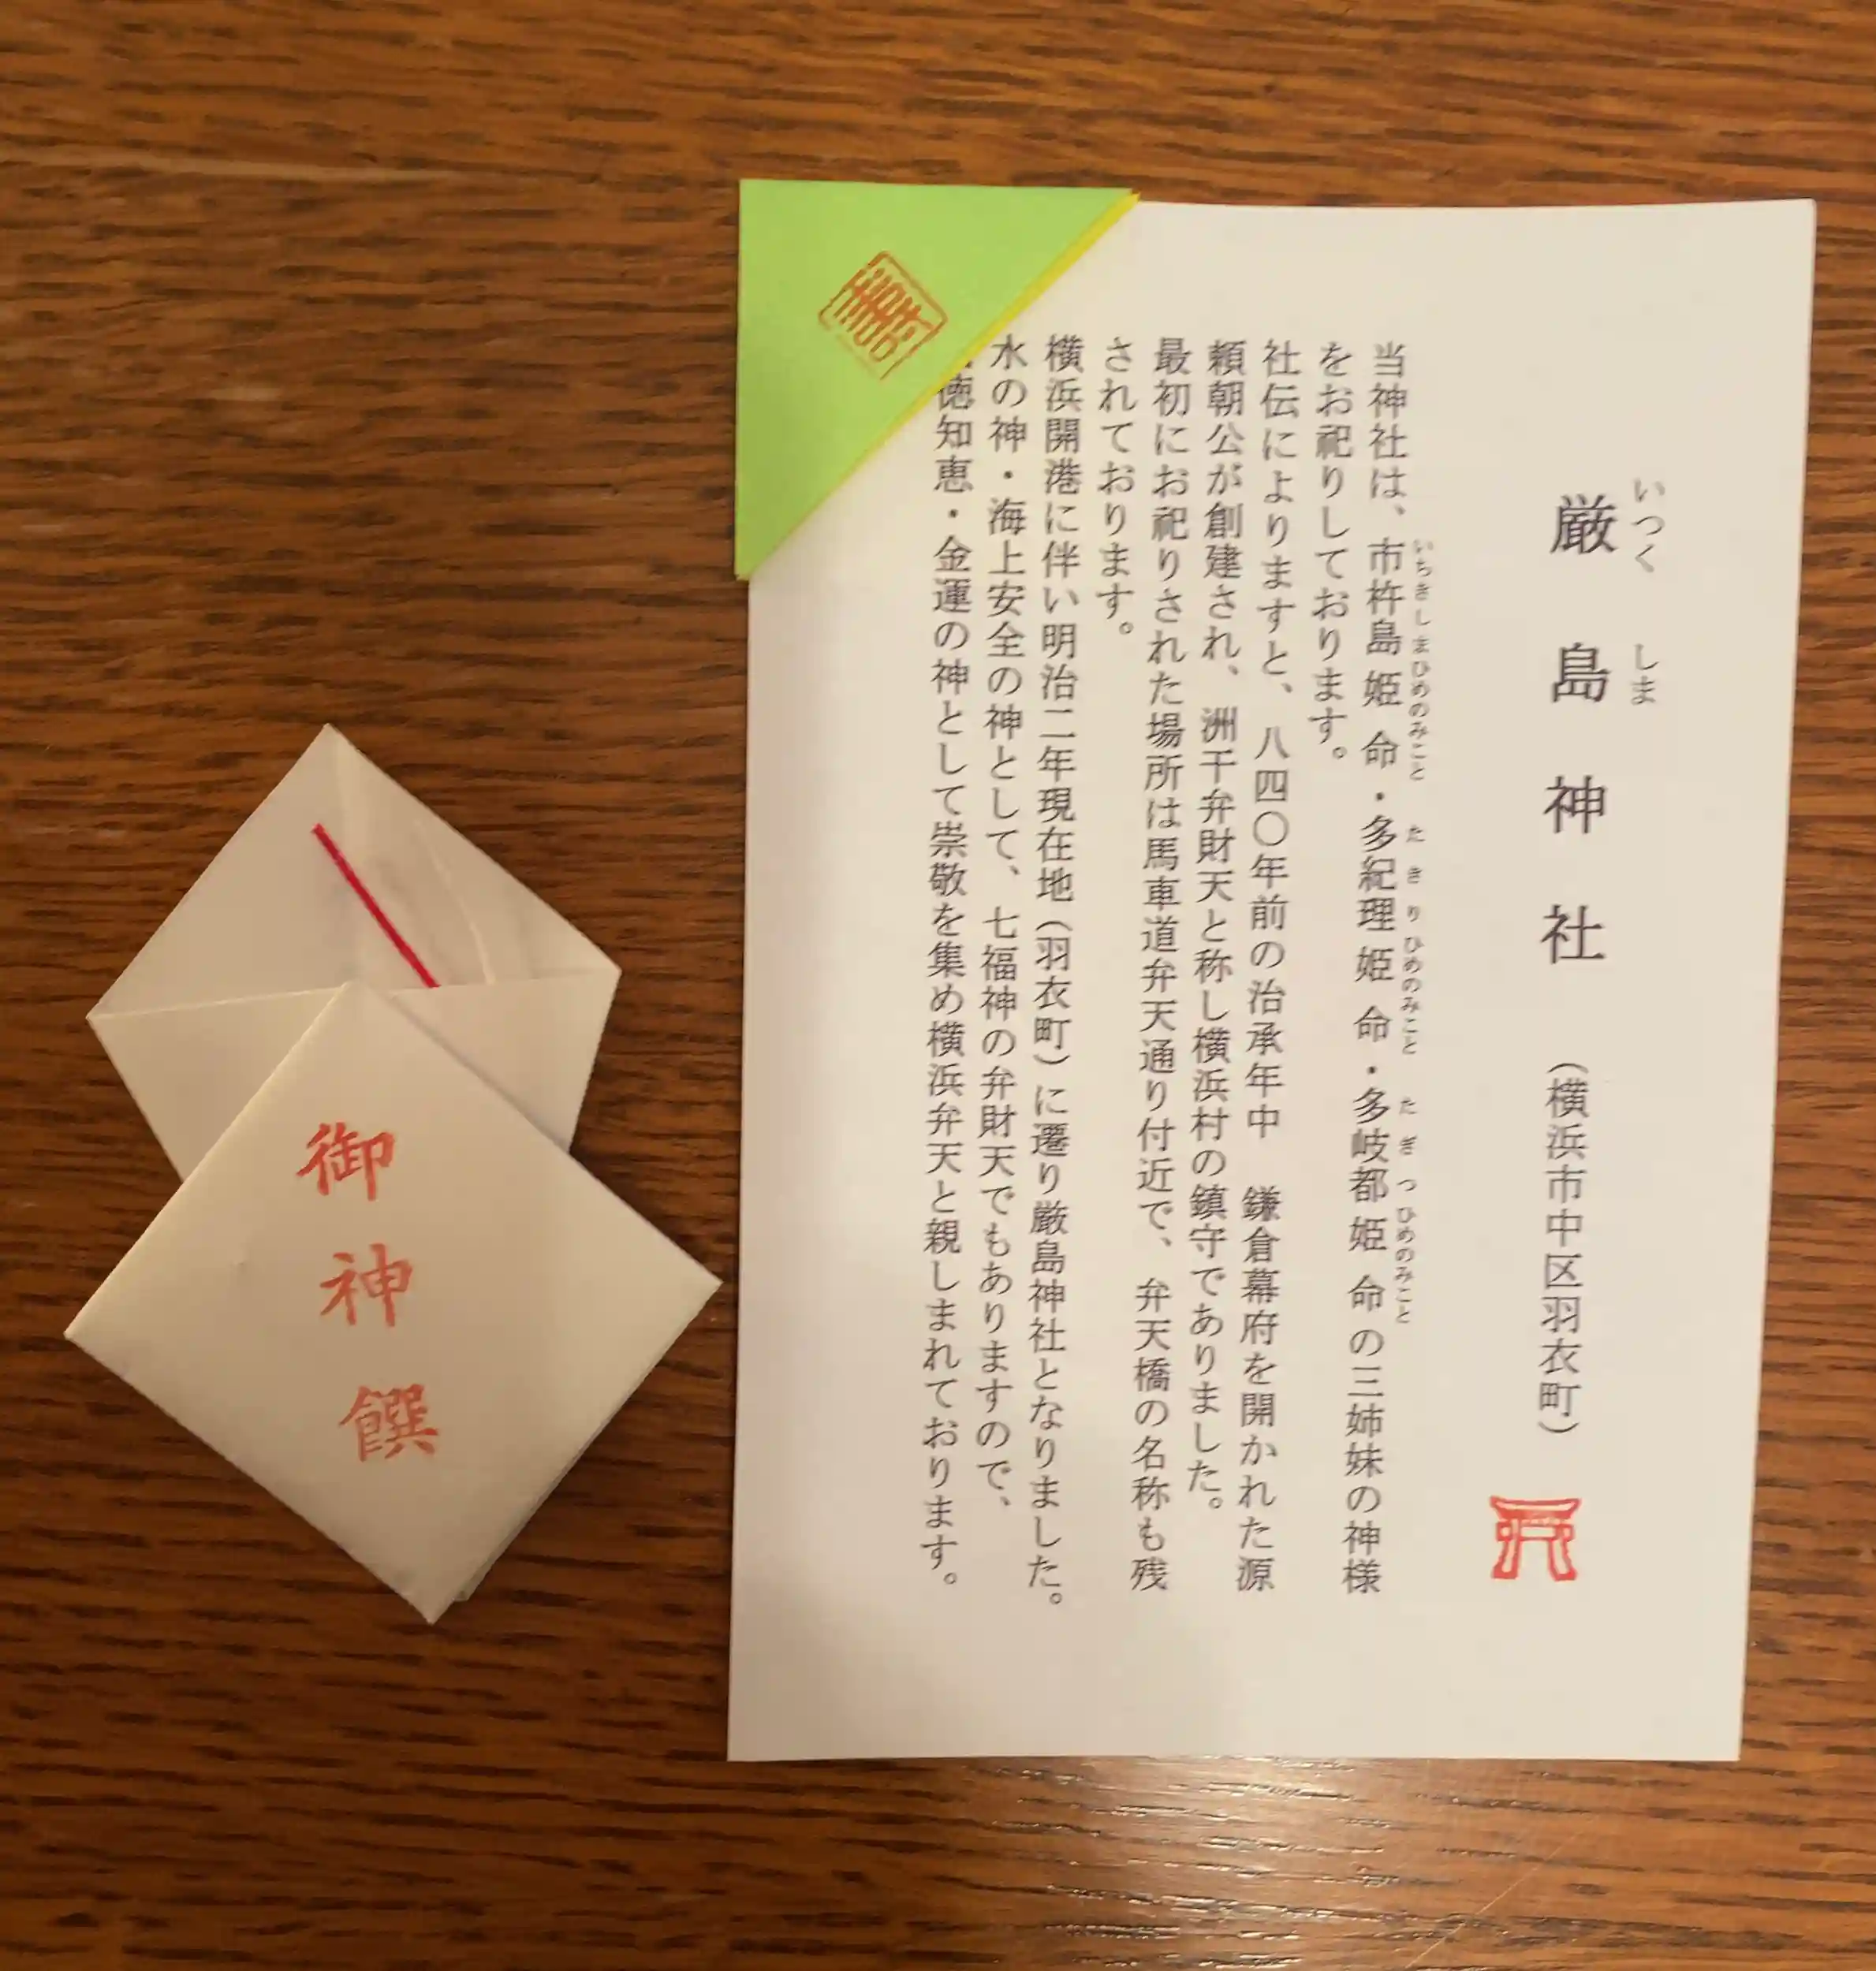 厳島神社 (横浜市中区羽衣町)
いつくしま
当神社は、市杵島姫命・多紀理姫命・多岐都姫命の三姉妹の神様
いちきしまひめのみこと たきりひめのみこと たぎつひめのみこと
をお祀りしております。
社伝によりますと、八四〇年前の治承年中 鎌倉幕府を開かれた源
頼朝公が創建され、洲干弁財天と称し横浜村の鎮守でありました。
最初にお祀りされた場所は馬車道弁天通り付近で、弁天橋の名称も残
されております。
横浜開港に伴い明治二年現在地(羽衣町)に遷り厳島神社となりました。
水の神・海上安全の神として、七福神の弁財天でもありますので、
徳知恵・金運の神として崇敬を集め横浜弁天と親しまれております。
寿
御神饌